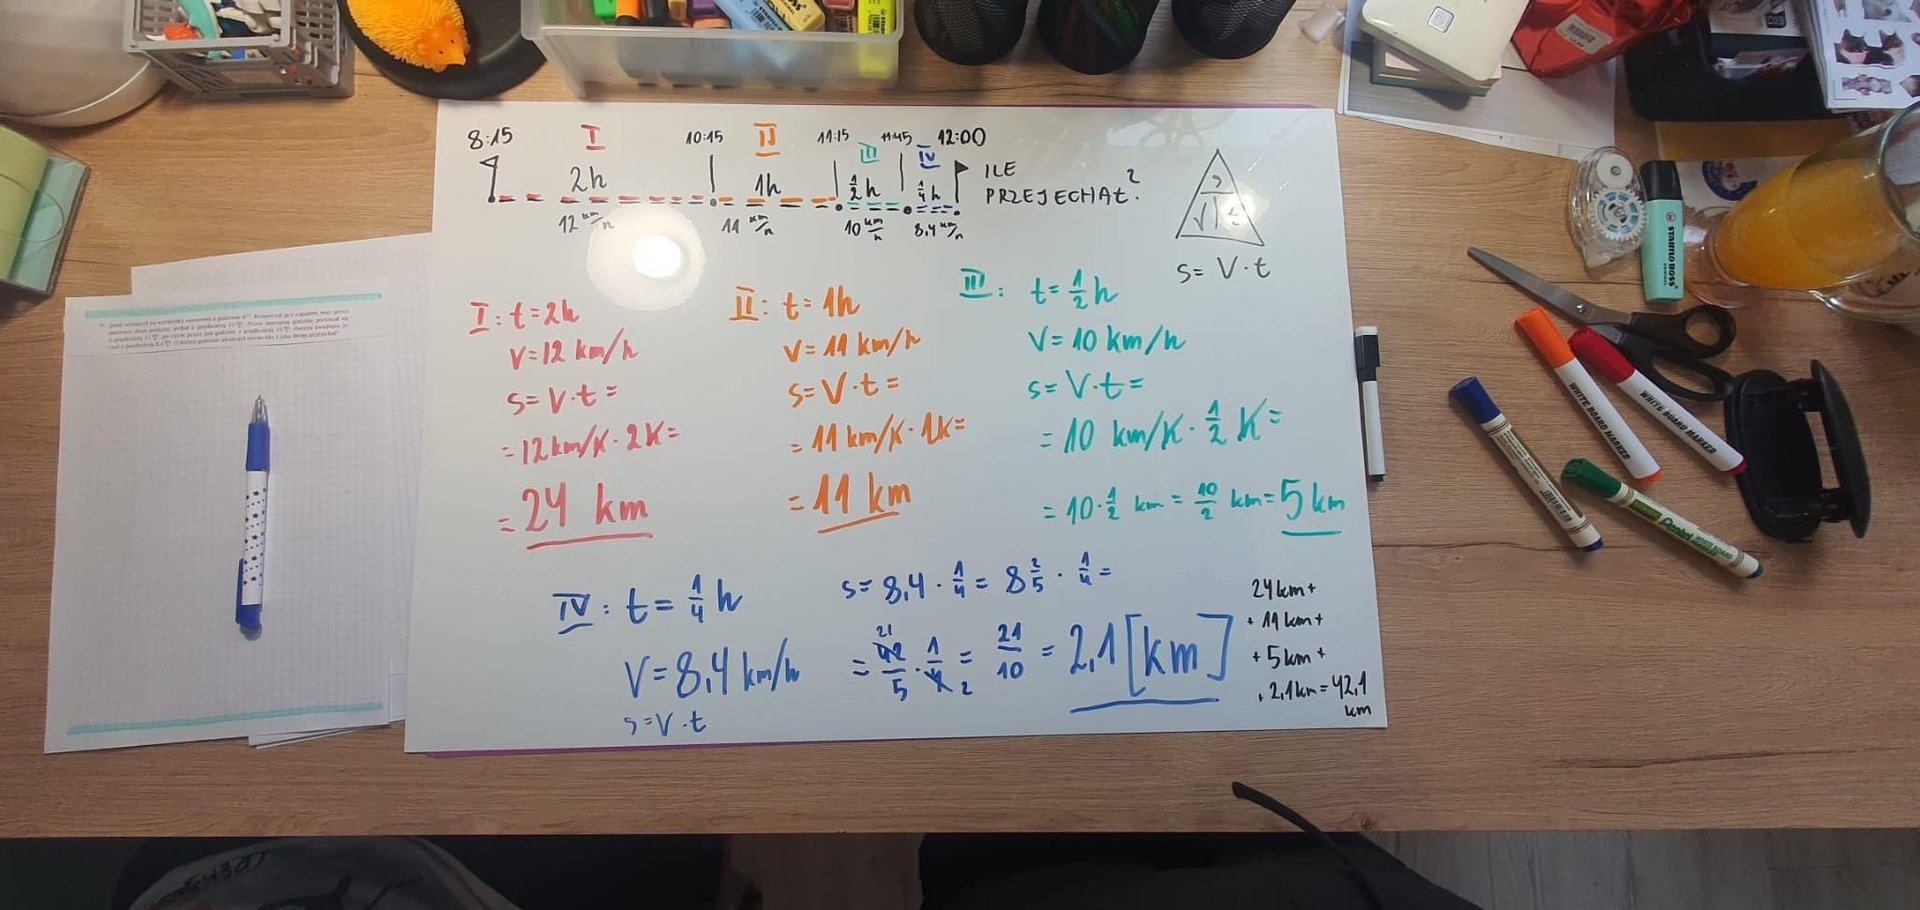 8:15 I 10:15 II 11:15 III 11:45 IV 12:00
2h 1h 1/2 h 1/4 h ILE
PRZEJECHAŁ?
12 km/h 11 km/h 10 km/h 8,4 km/h
s
V t
s = V · t
I : t = 2h
V = 12 km/h
s = V · t =
= 12 km/h · 2h =
= 24 km
II : t = 1h
V = 11 km/h
s = V · t =
= 11 km/h · 1h =
= 11 km
III : t = 1/2 h
V = 10 km/h
s = V · t =
= 10 km/h · 1/2 h =
= 10 · 1/2 km = 10/2 km = 5 km
IV : t = 1/4 h
V = 8,4 km/h
s = V · t
s = 8,4 · 1/4 = 8 2/5 · 1/4 =
21 2
= 42/5 · 1/4 = 21/10 = 2,1 [km]
24 km +
+ 11 km +
+ 5 km +
+ 2,1 km = 42,1
km
STABILO BOSS
WHITE BOARD MARKER
WHITE BOARD MARKER
Pentel
BOSS